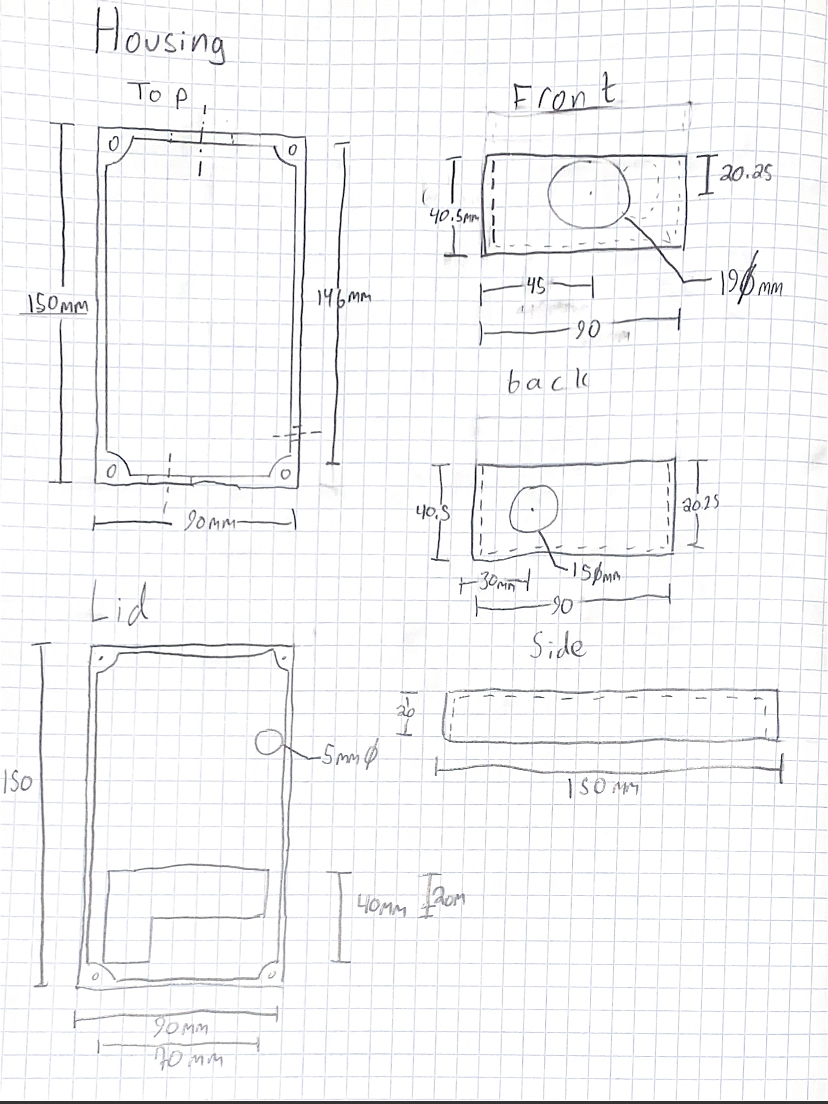 Housing
Top
150mm
146mm
90mm
Front
40.5mm
20.25
45
19ømm
90
back
40.5
20.25
30mm
15ømm
90
Lid
150
5mmø
40mm
20m
90mm
70mm
Side
150mm